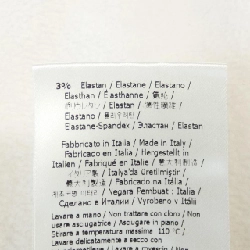 3% Elastan / Elastane / Elastano /
Elasthan / Élasthanne /
/ Elastan /
Elastano /
Elastane-Spandex / Эластан / Elastan
Fabbricato in Italia / Made in Italy /
Fabricado en Italia / Hergestellt in
Italien / Fabriqué en Italie / 義大利製造 /
/ İtalya'da Üretilmiştir /
義大利製造 / Fabricado na Itália /
/ Vegara Pembuat : Italia /
Сделано в Италии / Vyrobeno v Itálii
Lavare a mano / Non trattare con cloro / Non
usare asciugatrice / Asciugare in piano /
Stirare a temperatura massima 110 °C /
Lavare delicatamente a secco con